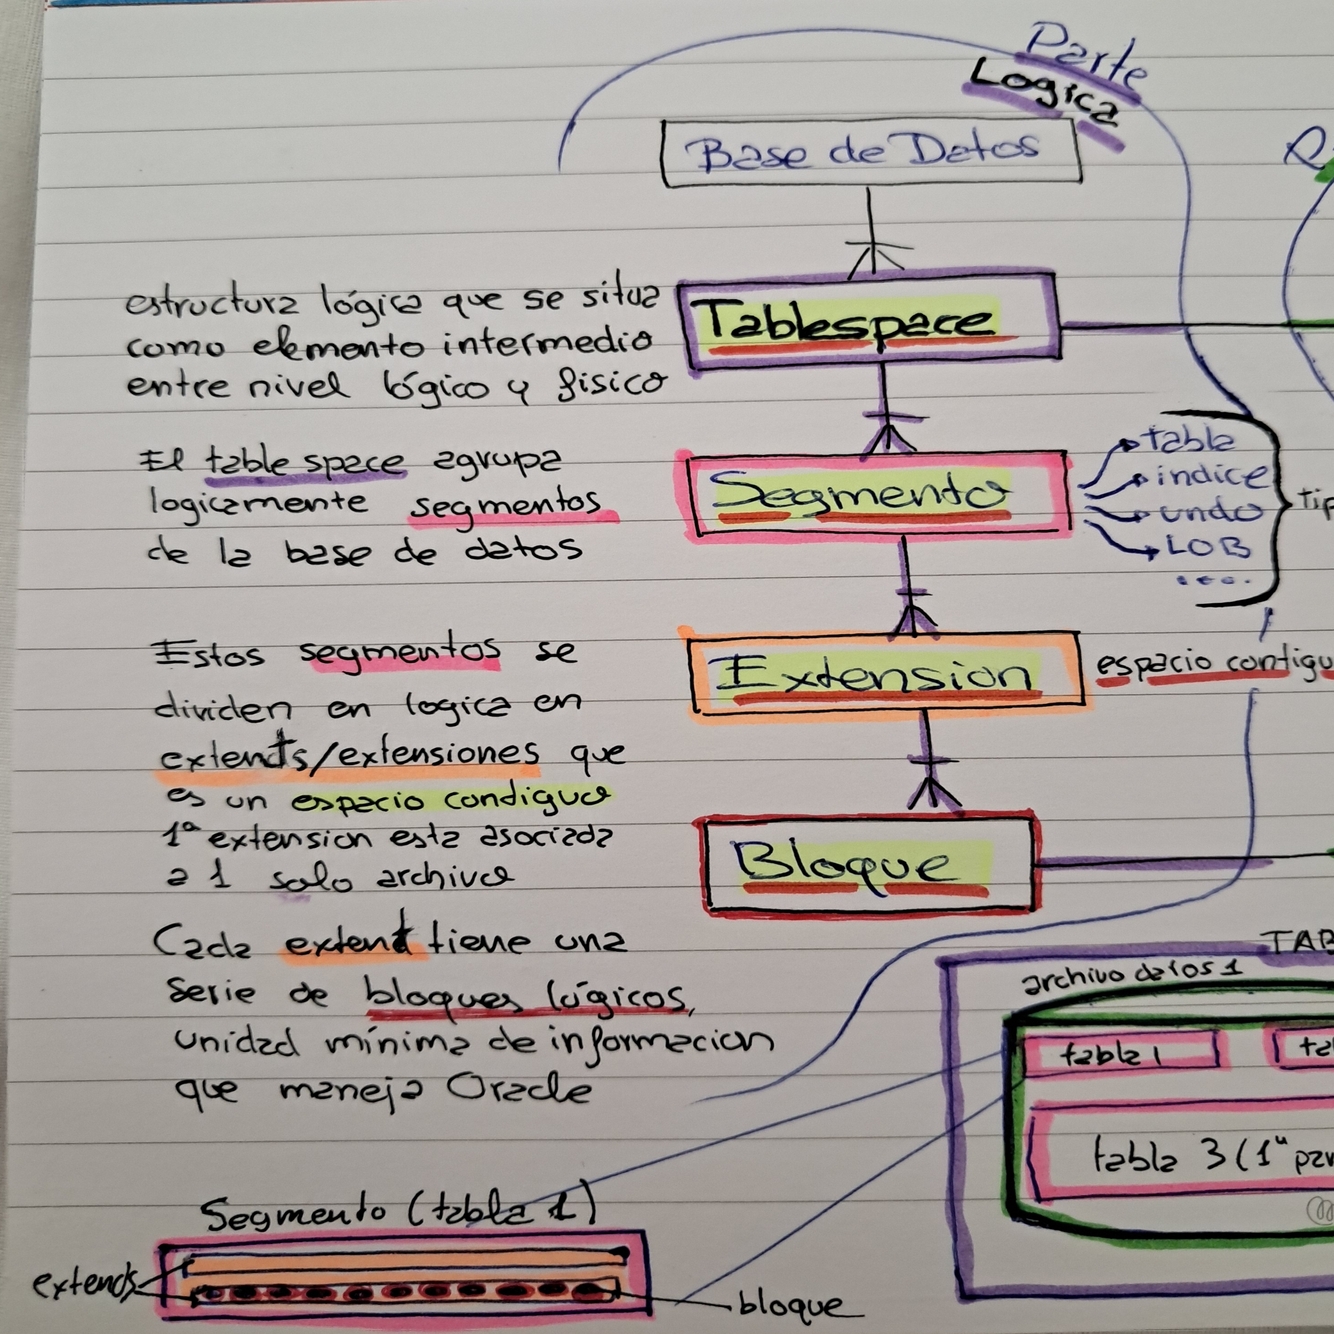 Parte
Logica
Base de Datos
Tablespace
estructura lógica que se situa
como elemento intermedio
entre nivel lógico y fisico
El table space agrupa
logicamente segmentos
de la base de datos
Segmento
tabla
indice
undo
LOB
....
Extension
espacio contigu
Estos segmentos se
dividen en logica en
extents/extensiones que
es un espacio condiguo
1ª extension esta asociada
a 1 solo archivo
Bloque
Cada extent tiene una
serie de bloques lógicos,
unidad mínima de informacion
que maneja Oracle
TAB
archivo datos 1
tabla 1
ta
tabla 3 (1ª par
Segmento (tabla 1)
extends
bloque